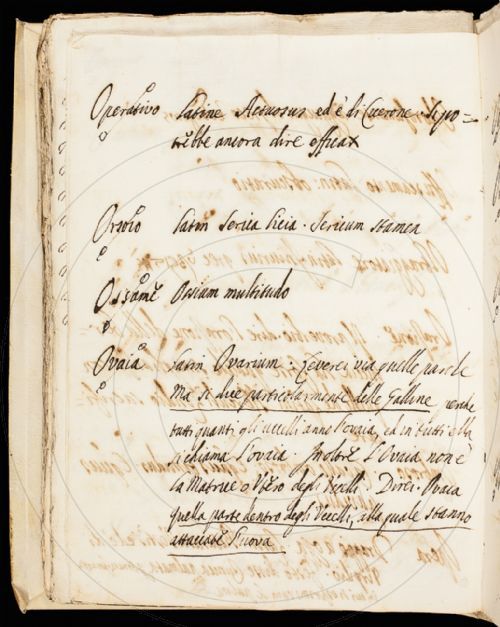 Operativo Latine Actuosus ed è di Cicerone. Si po=
trebbe ancora dire efficax
Orsoio Latin Serica Licia. Sericum stamen
Ossame Ossium multitudo
Ovaia Latin Ovarium. Leverei via quelle parole
Ma si dice particolarmente delle Galline perche
tutti quanti gli uccelli anno l'ovaia, ed in tutti ella
si chiama l'ovaia. Inoltre l'Ovaia non è
la Matrice o Utero degli Uccelli. Direi. Ovaia
quella parte dentro degli Uccelli, alla quale stanno
attaccate l'uova